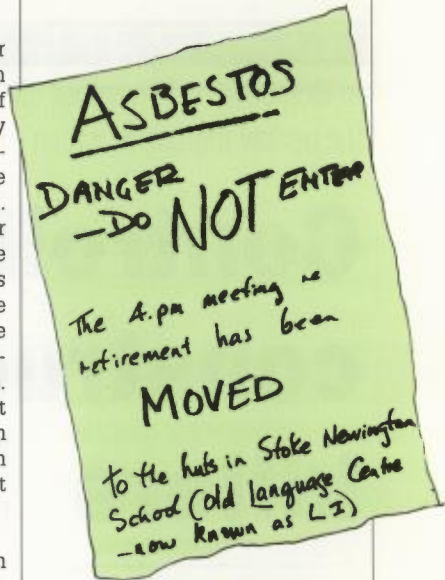 r
n
f
y
-
e
.
r
e
s
e
e
-
.
t
n
n
t
n
ASBESTOS
DANGER
—DO NOT ENTER
The 4.pm meeting re
retirement has been
MOVED
to the huts in Stoke Newington
School (Old Language Centre
—now known as LI)